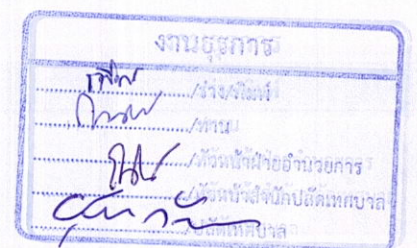 งานธุรการ
/ร่าง/พิมพ์
/ทาน
/หัวหน้าฝ่ายอำนวยการ
/หัวหน้าสำนักปลัดเทศบาล
/ปลัดเทศบาล